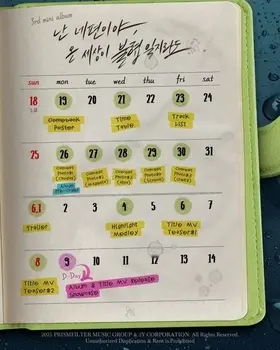 3rd mini album
난 네편이야,
온 세상이 불협일지라도
sun mon tue wed thu fri sat
18 19 20 21 22 23 24
Comeback Poster
Table
Track List
25 26 27 28 29 30 31
Concept Photos
Concept Photos
Concept Photos
Concept Photos
Album Pre-order
6.1 2 3 4 5 6 7
Trailer
Highlight Medley
Title MV Teaser#1
8 9 10 11 12 13 14
D-Day
Title MV Teaser#2
Album & Title MV Release
Showcase
PRISMFILTER MUSIC GROUP & CORPORATION. All Rights Reserved.
Unauthorized Duplication & is Prohibited